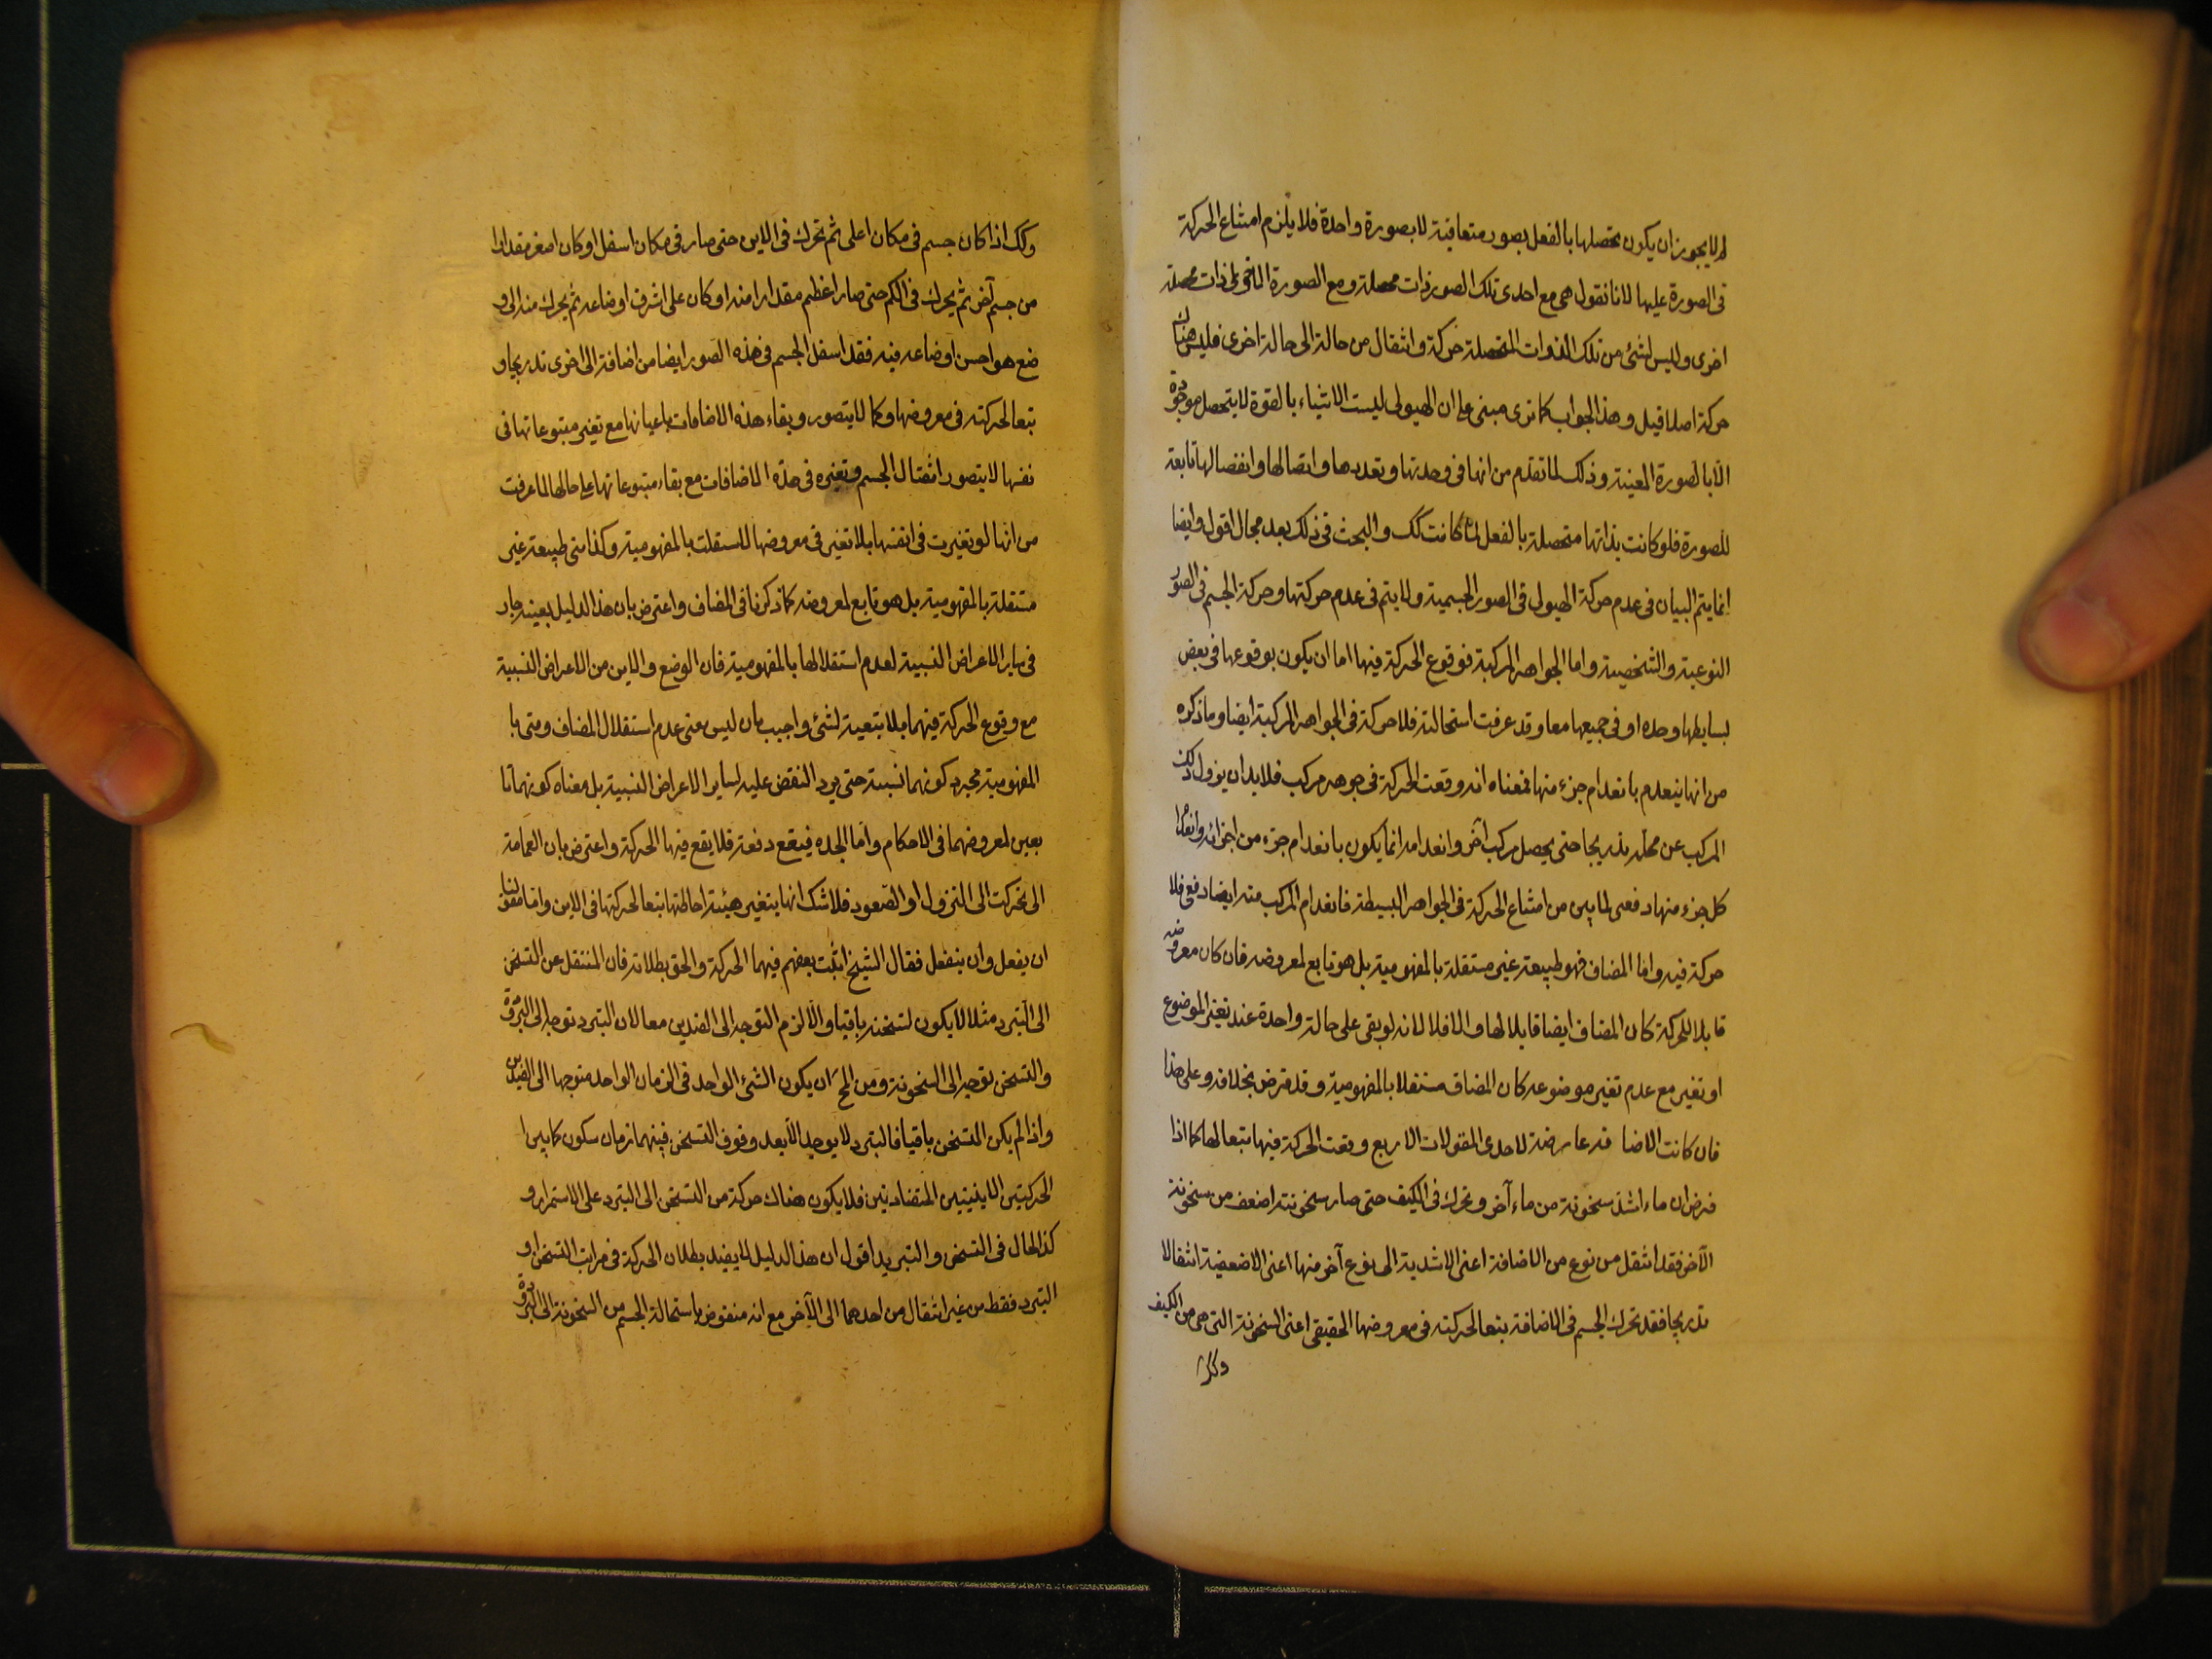 لم لا يجوز ان يكون تحصلها بالفعل بصور متعاقبة لا بصورة واحدة فلا يلزم امتناع الحركة
فى الصورة عليها لانا نقول هى مع احدى تلك الصور ذات محصلة ومع الصورة الاخرى ذات محصلة
اخرى وليس لشئ من تلك الذوات المتحصلة حركة وانتقال من حالة الى حالة اخرى فليس هناك
حركة اصلا قيل وهذا الجواب كما ترى مبنى على ان الهيولى ليست الا شياء بالقوة لا يتحصل موجودة
الا بالصورة المعينة وذلك لما تقدم من انها فى وحدتها وتعددها واتصالها وانفصالها تابعة
للصورة فلو كانت بذاتها متحصلة بالفعل لما كانت كك والبحث فى ذلك بعد مجال اقول وايضا
انما يتم البيان فى عدم حركة الهيولى فى الصور الجسمية ولا يتم فى عدم حركتها وحركة الجسم فى الصور
النوعية والشخصية واما الجواهر المركبة فوقوع الحركة فيها اما ان يكون بوقوعها فى بعض
بسايطها وحده او فى جميعها معا وقد عرفت استحالته فلا حركة فى الجواهر المركبة ايضا وما ذكره
من انها ينعدم بانعدام جزء منها فمعناه انه وقعت الحركة فى جوهر مركب فلابد ان يزول ذلك
المركب عن محله تدريجا حتى يحصل مركب آخر وانعدامه انما يكون بانعدام جزء من اجزائه وانعدام
كل جزء منها دفعى لما بين من امتناع الحركة فى الجواهر البسيطة فانعدام المركب منه ايضا دفعى فلا
حركة فيه واما المضاف فهو طبيعة غير مستقلة بالمفهومية بل هو تابع لمعروضه فان كان معروضه
قابلا للحركة كان المضاف ايضا قابلا لها والا فلا لانه لو بقى على حالة واحدة عند تغير الموضوع
او تغير مع عدم تغير موضوعه كان المضاف مستقلا بالمفهومية وقد فرض بخلافه وعلى هذا
فان كانت الاضا فه عارضة لاحدى المقولات الاربع وقعت الحركة فيها بتعالها كما اذا
فرض ان ماء اشد سخونة من ماء آخر وتحرك فى الكيف حتى صار سخونته اضعف من سخونة
الآخر فقد انتقل من نوع من الاضافة اعنى الاشدية الى نوع آخر منها اعنى الاضعفية انتقالا
تدريجا فقد تحرك الجسم فى الاضافة بتعا لحركته فى معروضها الحقيقى اعنى السخونة التى هى من الكيف
وكك اذا كان جسم فى مكان اعلى ثم تحرك فى الاين حتى صار فى مكان اسفل او كان اصغر مقدارا
من جسم آخر ثم يحرك فى الكم حتى صار اعظم مقدارا منه او كان على اشرف اوضاعه ثم يحرك منه الى و
ضع هو احسن اوضاعه فيه فقد اسفل الجسم فى هذه الصور ايضا من اضافة الى اخرى تدريجا و
بتعا لحركته فى معروضها وكما لا يتصور وبقاء هذه الاضافات باعيانها مع تغير متبوعاتها فى
نفسها لا يتصور انتقال الجسم وتغيره فى هذه الاضافات مع بقاء متبوعاتها على حالها لما عرفت
من انها لو تغيرت فى انفسها بلا تغير فى معروضها لاستقلت بالمفهومية وكذا متى طبيعة غير
مستقلة بالمفهومية بل هو تابع لمعروضه كما ذكرنا فى المضاف واعترض بان هذا الدليل بعينه جار
فى ساير الاعراض النسبية لعدم استقلالها بالمفهومية فان الوضع والاين من الاعراض النسبية
مع وقوع الحركة فيهما بلا بتعية لشئ واجيب بان ليس معنى عدم استقلال المضاف ومتى با
المفهومية مجرد كونهما نسبية حتى يرد النقض عليه بساير الاعراض النسبية بل معناه كونهما تا
بعين لمعروضهما فى الاحكام واما الجدة فيقع دفعة فلا يقع فيها الحركة واعترض بان العمامة
الى تحركت الى النزول او الصعود فلا شك انها يتغير هيئة احاطتها بتعا لحركتها فى الاين واما مقولتا
ان يفعل وان ينفعل فقال الشيخ اثبت بعضهم فيهما الحركة والحق بطلانه فان المنتقل عن التسخن
الى التبرد مثلا لا يكون تسخنه باقيا والا لزم التوجه الى الضدين معا لان التبرد توجه الى البرودة
والتسخن توجه الى السخونة ومن المح ان يكون الشئ الواحد فى الزمان الواحد متوجها الى الضدين
واذا لم يكن التسخن باقيا فالتبرد لا يوجد الا بعد وقوف التسخن فبينهما زمان سكون كما بين ا
لحركتين الاينيتين المتضادتين فلا يكون هناك حركة من التسخن الى التبرد على الاستمرار و
كذا الحال فى التسخن والتبريد اقول ان هذا الدليل لا يفيد بطلان الحركة فى مراتب التسخن او
التبرد فقط من غير انتقال من احدهما الى الآخر مع انه منقوض باستحالة الجسم من السخونة الى البرودة